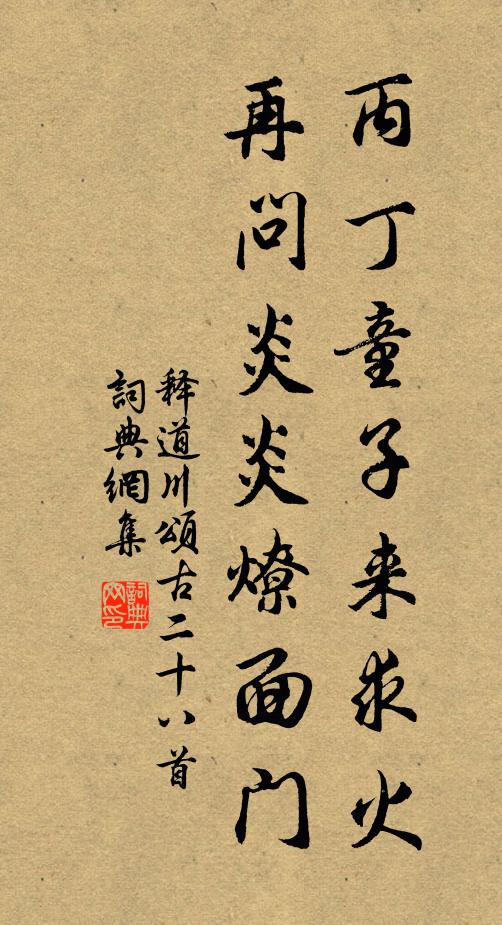 丙丁童子来求火
再问炎炎燎面门
释道川頌古二十八首
詞典網集
詞典网印